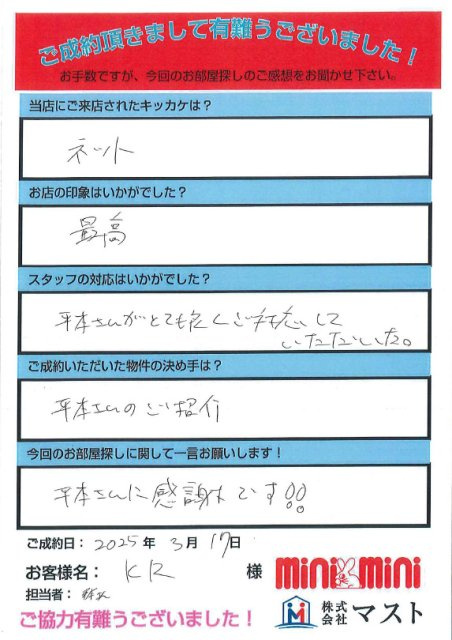 ご成約頂きまして有難うございました！
お手数ですが、今回のお部屋探しのご感想をお聞かせ下さい。
当店にご来店されたキッカケは？
ネット
お店の印象はいかがでした？
最高
スタッフの対応はいかがでした？
平本さんがとても良くご対応して
いただいた。
ご成約いただいた物件の決め手は？
平本さんのご紹介
今回のお部屋探しに関して一言お願いします！
平本さんに感謝です!!
ご成約日： 2025 年 3 月 17 日
お客様名： K R 様
担当者：
ご協力有難うございました！
mini mini
株式会社 マスト